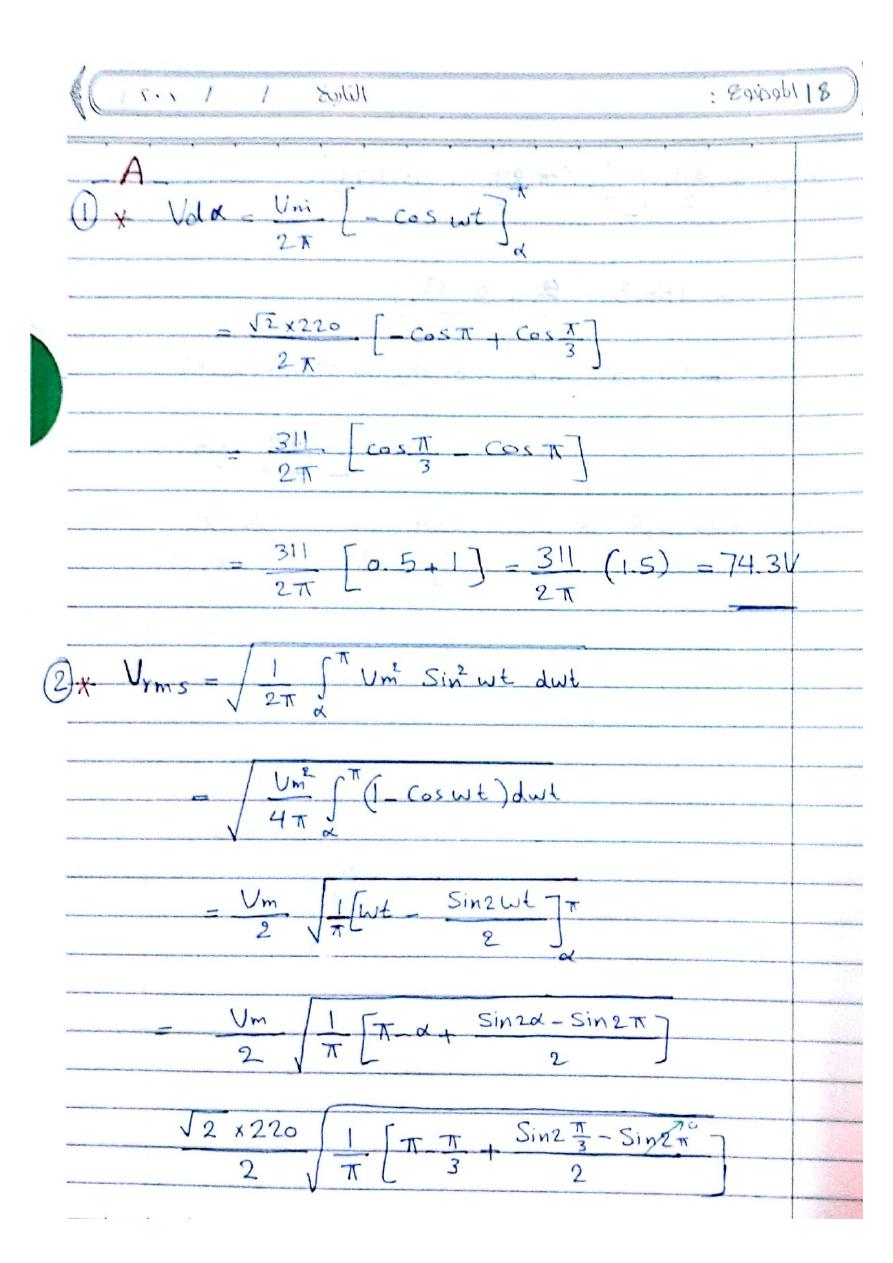 الموضوع : 18 التاريخ / / ٢٠٠١
A
① * Vdα = Vm/2π [- cos wt]_α^π
= √2×220/2π [-cos π + cos π/3]
= 311/2π [cos π/3 - cos π]
= 311/2π [0.5+1] = 311/2π (1.5) = 74.3V
②* Vrms = √(1/2π ∫_α^π Vm² Sin² wt dwt)
= √(Vm²/4π ∫_α^π (1 - cos wt) dwt)
= Vm/2 √(1/π [wt - Sin2wt/2]_α^π)
= Vm/2 √(1/π [π - α + (Sin2α - Sin2π)/2])
√2 ×220/2 √(1/π [π - π/3 + (Sin2 π/3 - Sin2π⁰)/2])